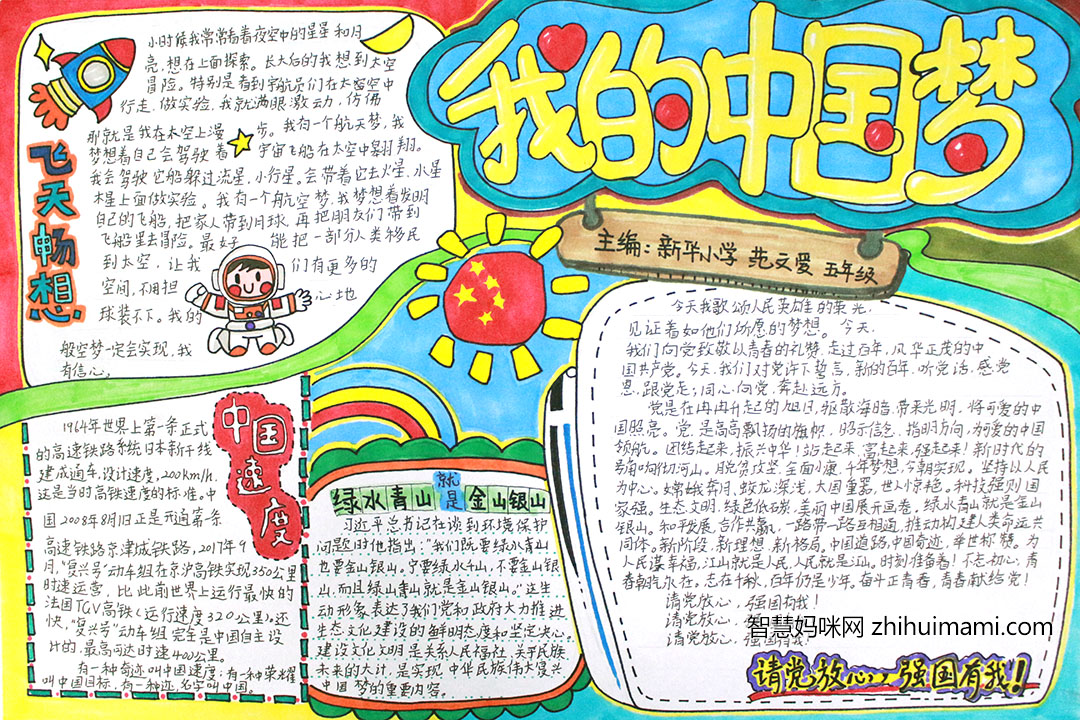 我的中国梦
主编：新华小学 苑文爱 五年级
飞天畅想
小时候我常常看着夜空中的星星和月
亮,想在上面探索。长大后的我想到太空
冒险。特别是看到宇航员们在太空空中
行走、做实验,我就满眼激动,仿佛
那就是我在太空上漫步。我有一个航天梦,我
梦想着自己会驾驶着宇宙飞船在太空中翱翔。
我会驾驶它船躲过流星,小行星。会带着它去火星,水星
木星上面做实验。我有一个航空梦,我梦想着发明
自己的飞船,把家人带到月球,再把朋友们带到
飞船里去冒险。最好能把一部分人类移民
到太空,让我们有更多的
空间,不用担心地
球装不下。我的
般空梦一定会实现,我
有信心。
中国速度
1964年世界上第一条正式
的高速铁路系统日本新干线
建成通车,设计速度,200km/h.
这是当时高铁速度的标准。中
国2008年8月1日正是开通第一条
高速铁路京津成铁路,2017年9
月,“复兴号”动车组在京沪高铁实现350公里
时速运营,比此前世界上运行最快的
法国TGV高铁(运行速度320公里)还
快,“复兴号”动车组完全是中国自主设
计的,最高可达时速400公里。
有一种奇迹叫中国速度;有一种荣耀
叫中国目标,有一种迹,名字叫中国。
绿水青山就是金山银山
习近平总书记在谈到环境保护
问题时他指出:“我们既要绿水青山,
也要金山银山。宁要绿水千山,不要金山银
山,而且绿山青山就是金山银山。”这生
动形象表达了我们党和政府大力推进
生态文化建设的鲜明态度和坚定决心,
建设文化文明是关系人民福祉,关乎民族
未来的大计,是实现中华民族伟大复兴
中国梦的重要内容。
今天我歌颂人民英雄的荣光,
见证着如他们所愿的梦想。今天,
我们向党致敬以青春的礼赞,走过百年,风华正茂的中
国共产党。今天,我们对党许下誓言,新的百年,听党话,感党
恩,跟党走;同心向党,奔赴远方。
党是在冉冉升起的旭日,驱散海暗,带来光明,将可爱的中
国照亮。党是高高飘扬的旗帜,昭示信念,指明方向,为可爱的中国
领航。团结起来,振兴中华!站起来,富起来,强起来!新时代的
号角响彻河山。脱贫攻坚,全面小康,千年梦想,今朝实现。坚持以人民
为中心。嫦娥奔月,蛟龙深浅,大国重器,世人惊艳。科技强则国
家强。生态文明,绿色低碳,美丽中国展开画卷。绿水青山就是金山
银山。和平发展,合作共赢,一路带一路互相通,推动构建人类命运共
同体。新阶段,新理想,新格局。中国道路,中国奇迹,举世称赞。为
人民谋幸福,江山就是人民,人民就是江山。时刻准备着!不忘初心,青
春朝气永在。志在千秋,百年仍是少年。奋斗正青春,青春献给党!
请党放心,强国有我!
请党放心,强国有我!
请党放心,强国有我!
智慧妈咪网 zhihuimami.com
请党放心,强国有我!